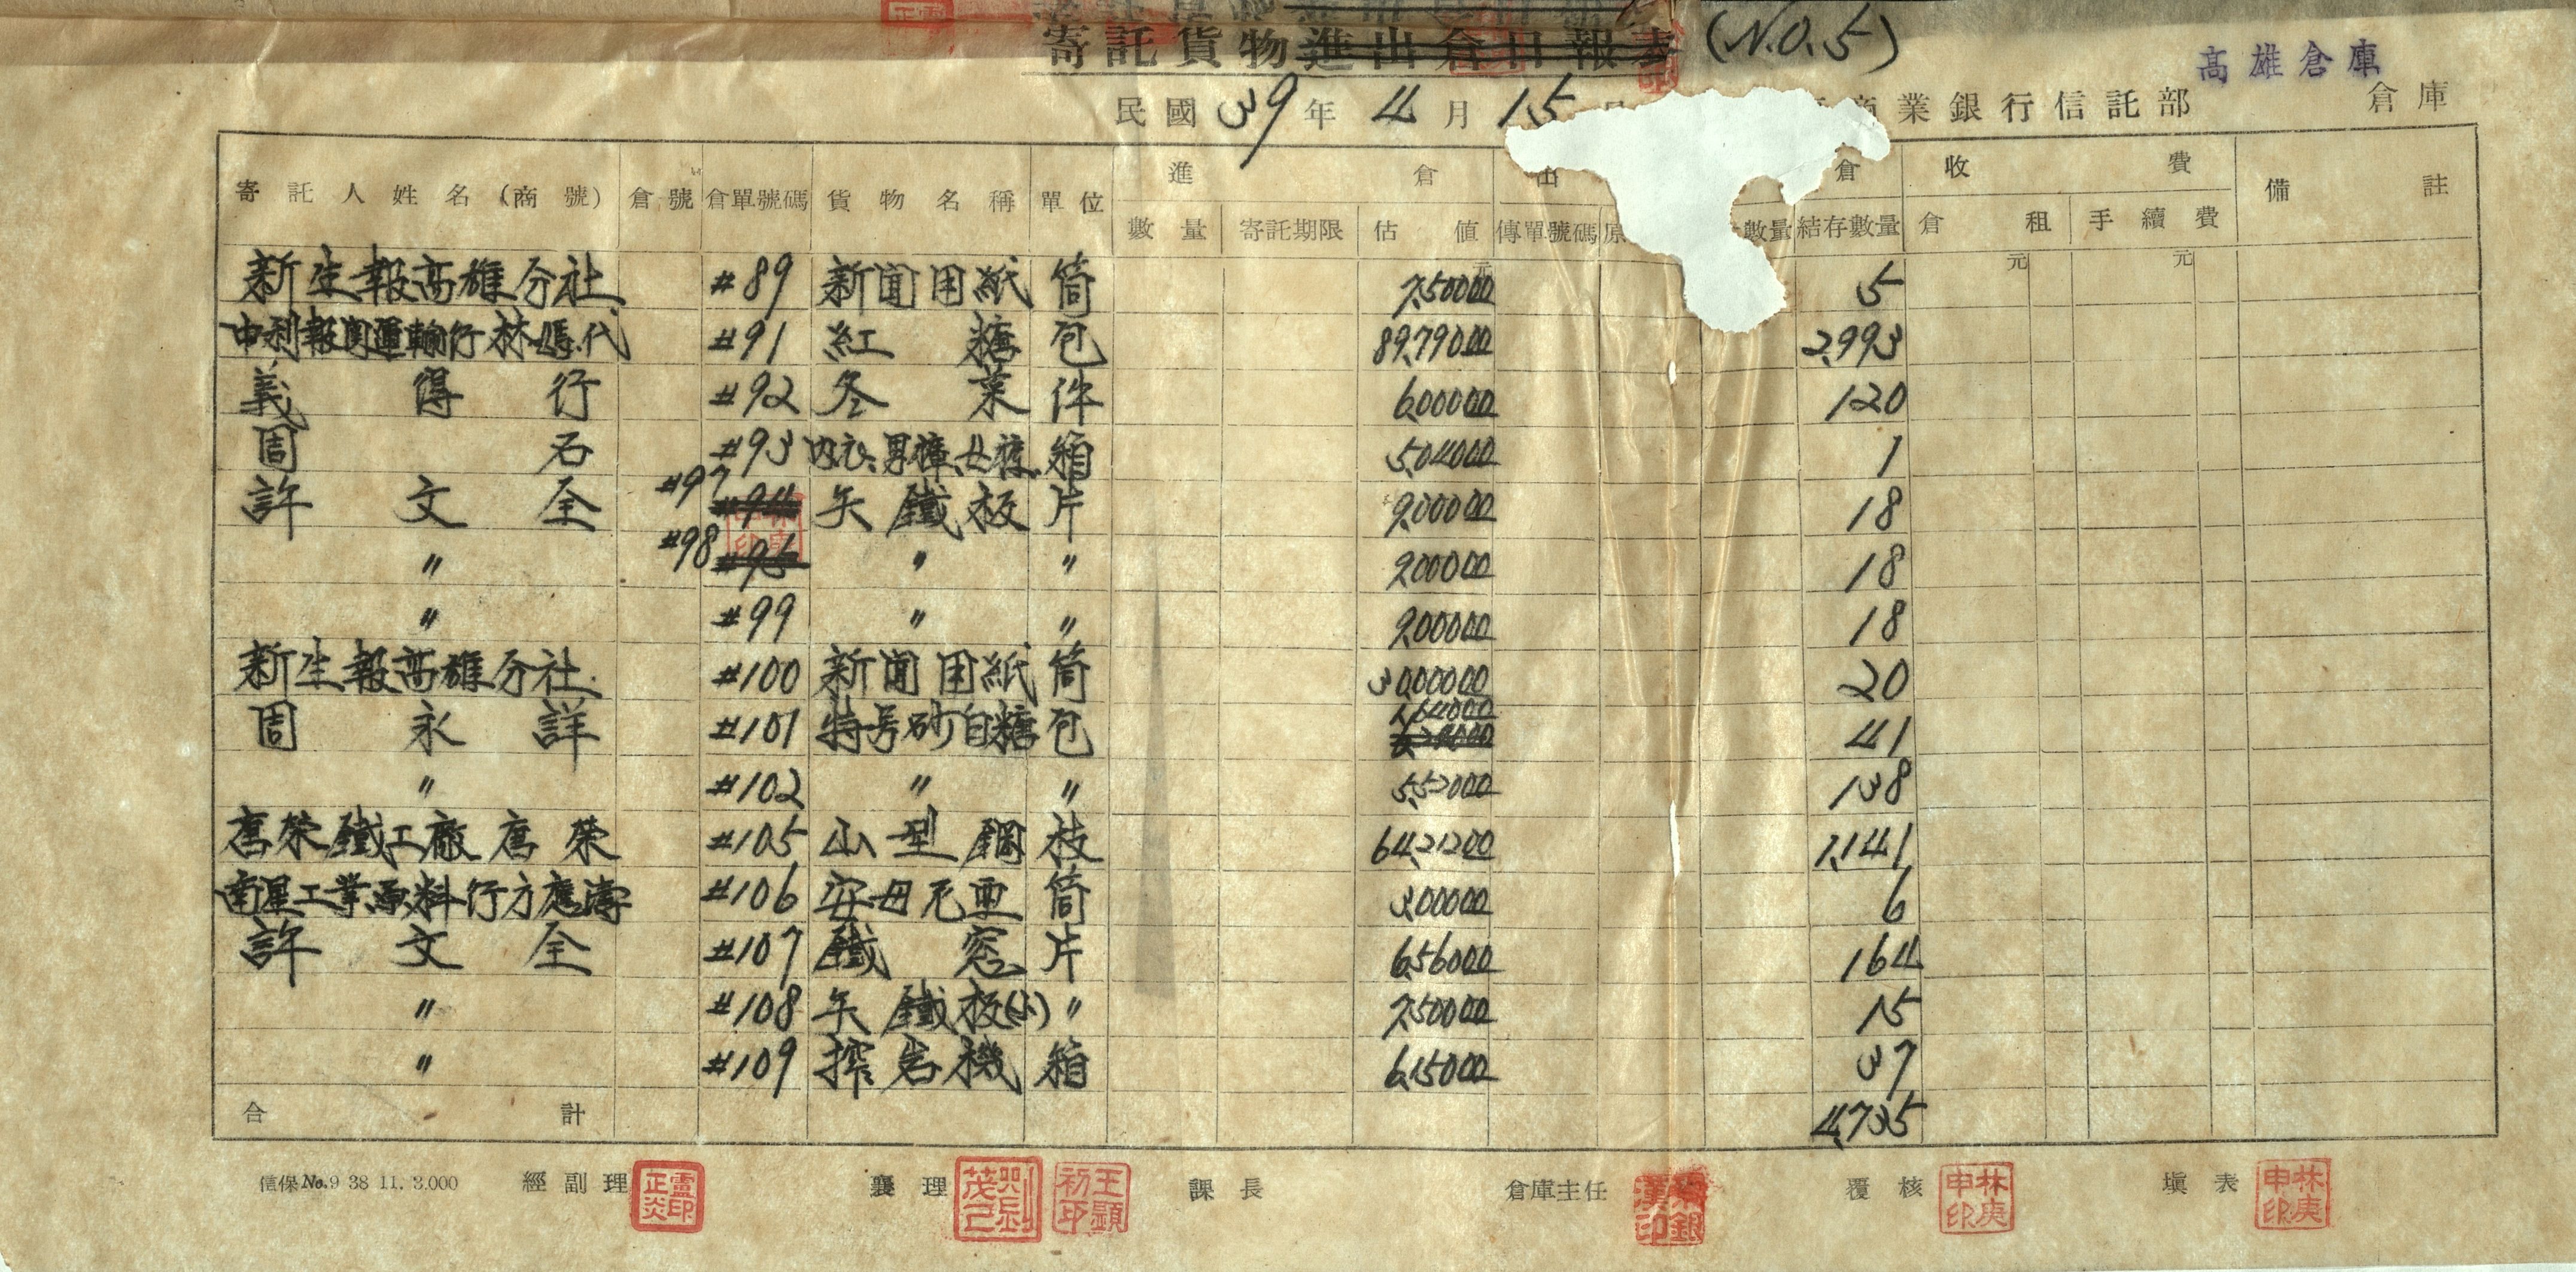 寄託貨物進出倉日報表 (NO.5)
高雄倉庫
民國 39 年 4 月 15 日 商業銀行信託部 倉庫
寄託人姓名(商號) 倉號 倉單號碼 貨物名稱 單位 進倉 出倉 收費 備註
數量 寄託期限 估值 傳單號碼 原 數量 結存數量 倉租 手續費
元 元 元
新生報高雄分社 #89 新聞用紙 筒 7,500.00 5
中利報關運輸行林 代 #91 紅糖 包 89,790.00 2,993
義得行 #92 冬菜 件 6,000.00 120
周石 #93 內衣、男褲、女褲 箱 5,040.00 1
許文全 #97 #94 矢鐵板 片 9,000.00 18
〃 #98 #95 〃 〃 9,000.00 18
〃 #99 〃 〃 9,000.00 18
新生報高雄分社. #100 新聞用紙 筒 30,000.00 20
周永詳 #101 特号砂白糖 包 1,640.00 41
〃 #102 〃 〃 5,520.00 138
唐榮鐵工廠唐榮 #105 山型鋼 枝 64,212.00 1,141
南星工業原料行方應濤 #106 安母尼亜 筒 3,000.00 6
許文全 #107 鐵窓 片 6,560.00 164
〃 #108 矢鐵板(小) 〃 7,500.00 15
〃 #109 搾岩機 箱 6,150.00 37
合計 4,735
信保 No.9 38 11. 3.000 經副理 襄理 課長 倉庫主任 覆核 林庚申印 填表 林庚申印